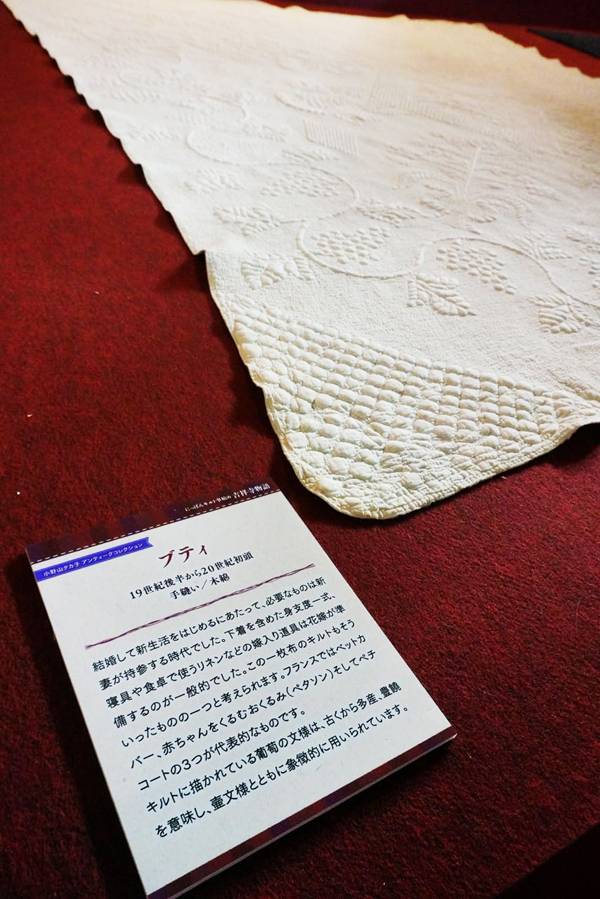 にっぽんキルト事始め 吉祥寺物語
小野山タカ子 アンティークコレクション
ブティ
19世紀後半から20世紀初頭
手縫い/木綿
結婚して新生活をはじめるにあたって、必要なものは新
妻が持参する時代でした。下着を含めた身支度一式、
寝具や食卓で使うリネンなどの嫁入り道具は花嫁が準
備するのが一般的でした。この一枚布のキルトもそう
いったものの一つと考えられます。フランスではベットカ
バー、赤ちゃんをくるむおくるみ(ペタソン)そしてペチ
コートの3つが代表的なものです。
キルトに描かれている葡萄の文様は、古くから多産、豊饒
を意味し、壷文様とともに象徴的に用いられています。